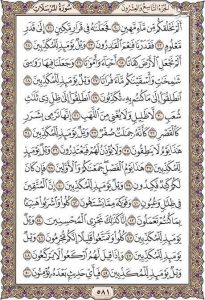 الجزء التاسع والعشرون سورة المرسلات
أَلَمْ نَخْلُقكُّم مِّن مَّاءٍ مَّهِينٍ ٢٠ فَجَعَلْنَاهُ فِي قَرَارٍ مَّكِينٍ ٢١ إِلَىٰ قَدَرٍ
مَّعْلُومٍ ٢٢ فَقَدَرْنَا فَنِعْمَ الْقَادِرُونَ ٢٣ وَيْلٌ يَوْمَئِذٍ لِّلْمُكَذِّبِينَ ٢٤
أَلَمْ نَجْعَلِ الْأَرْضَ كِفَاتًا ٢٥ أَحْيَاءً وَأَمْوَاتًا ٢٦ وَجَعَلْنَا فِيهَا رَوَاسِيَ
شَامِخَاتٍ وَأَسْقَيْنَاكُم مَّاءً فُرَاتًا ٢٧ وَيْلٌ يَوْمَئِذٍ لِّلْمُكَذِّبِينَ ٢٨
انطَلِقُوا إِلَىٰ مَا كُنتُم بِهِ تُكَذِّبُونَ ٢٩ انطَلِقُوا إِلَىٰ ظِلٍّ ذِي ثَلَاثِ
شُعَبٍ ٣٠ لَّا ظَلِيلٍ وَلَا يُغْنِي مِنَ اللَّهَبِ ٣١ إِنَّهَا تَرْمِي بِشَرَرٍ
كَالْقَصْرِ ٣٢ كَأَنَّهُ جِمَالَتٌ صُفْرٌ ٣٣ وَيْلٌ يَوْمَئِذٍ لِّلْمُكَذِّبِينَ ٣٤
هَٰذَا يَوْمُ لَا يَنطِقُونَ ٣٥ وَلَا يُؤْذَنُ لَهُمْ فَيَعْتَذِرُونَ ٣٦ وَيْلٌ
يَوْمَئِذٍ لِّلْمُكَذِّبِينَ ٣٧ هَٰذَا يَوْمُ الْفَصْلِ جَمَعْنَاكُمْ وَالْأَوَّلِينَ ٣٨ فَإِن كَانَ
لَكُمْ كَيْدٌ فَكِيدُونِ ٣٩ وَيْلٌ يَوْمَئِذٍ لِّلْمُكَذِّبِينَ ٤٠ إِنَّ الْمُتَّقِينَ
فِي ظِلَالٍ وَعُيُونٍ ٤١ وَفَوَاكِهَ مِمَّا يَشْتَهُونَ ٤٢ كُلُوا وَاشْرَبُوا هَنِيئًا
بِمَا كُنتُمْ تَعْمَلُونَ ٤٣ إِنَّا كَذَٰلِكَ نَجْزِي الْمُحْسِنِينَ ٤٤ وَيْلٌ
يَوْمَئِذٍ لِّلْمُكَذِّبِينَ ٤٥ كُلُوا وَتَمَتَّعُوا قَلِيلًا إِنَّكُم مُّجْرِمُونَ ٤٦
وَيْلٌ يَوْمَئِذٍ لِّلْمُكَذِّبِينَ ٤٧ وَإِذَا قِيلَ لَهُمُ ارْكَعُوا لَا يَرْكَعُونَ ٤٨
وَيْلٌ يَوْمَئِذٍ لِّلْمُكَذِّبِينَ ٤٩ فَبِأَيِّ حَدِيثٍ بَعْدَهُ يُؤْمِنُونَ ٥٠
٥٨١